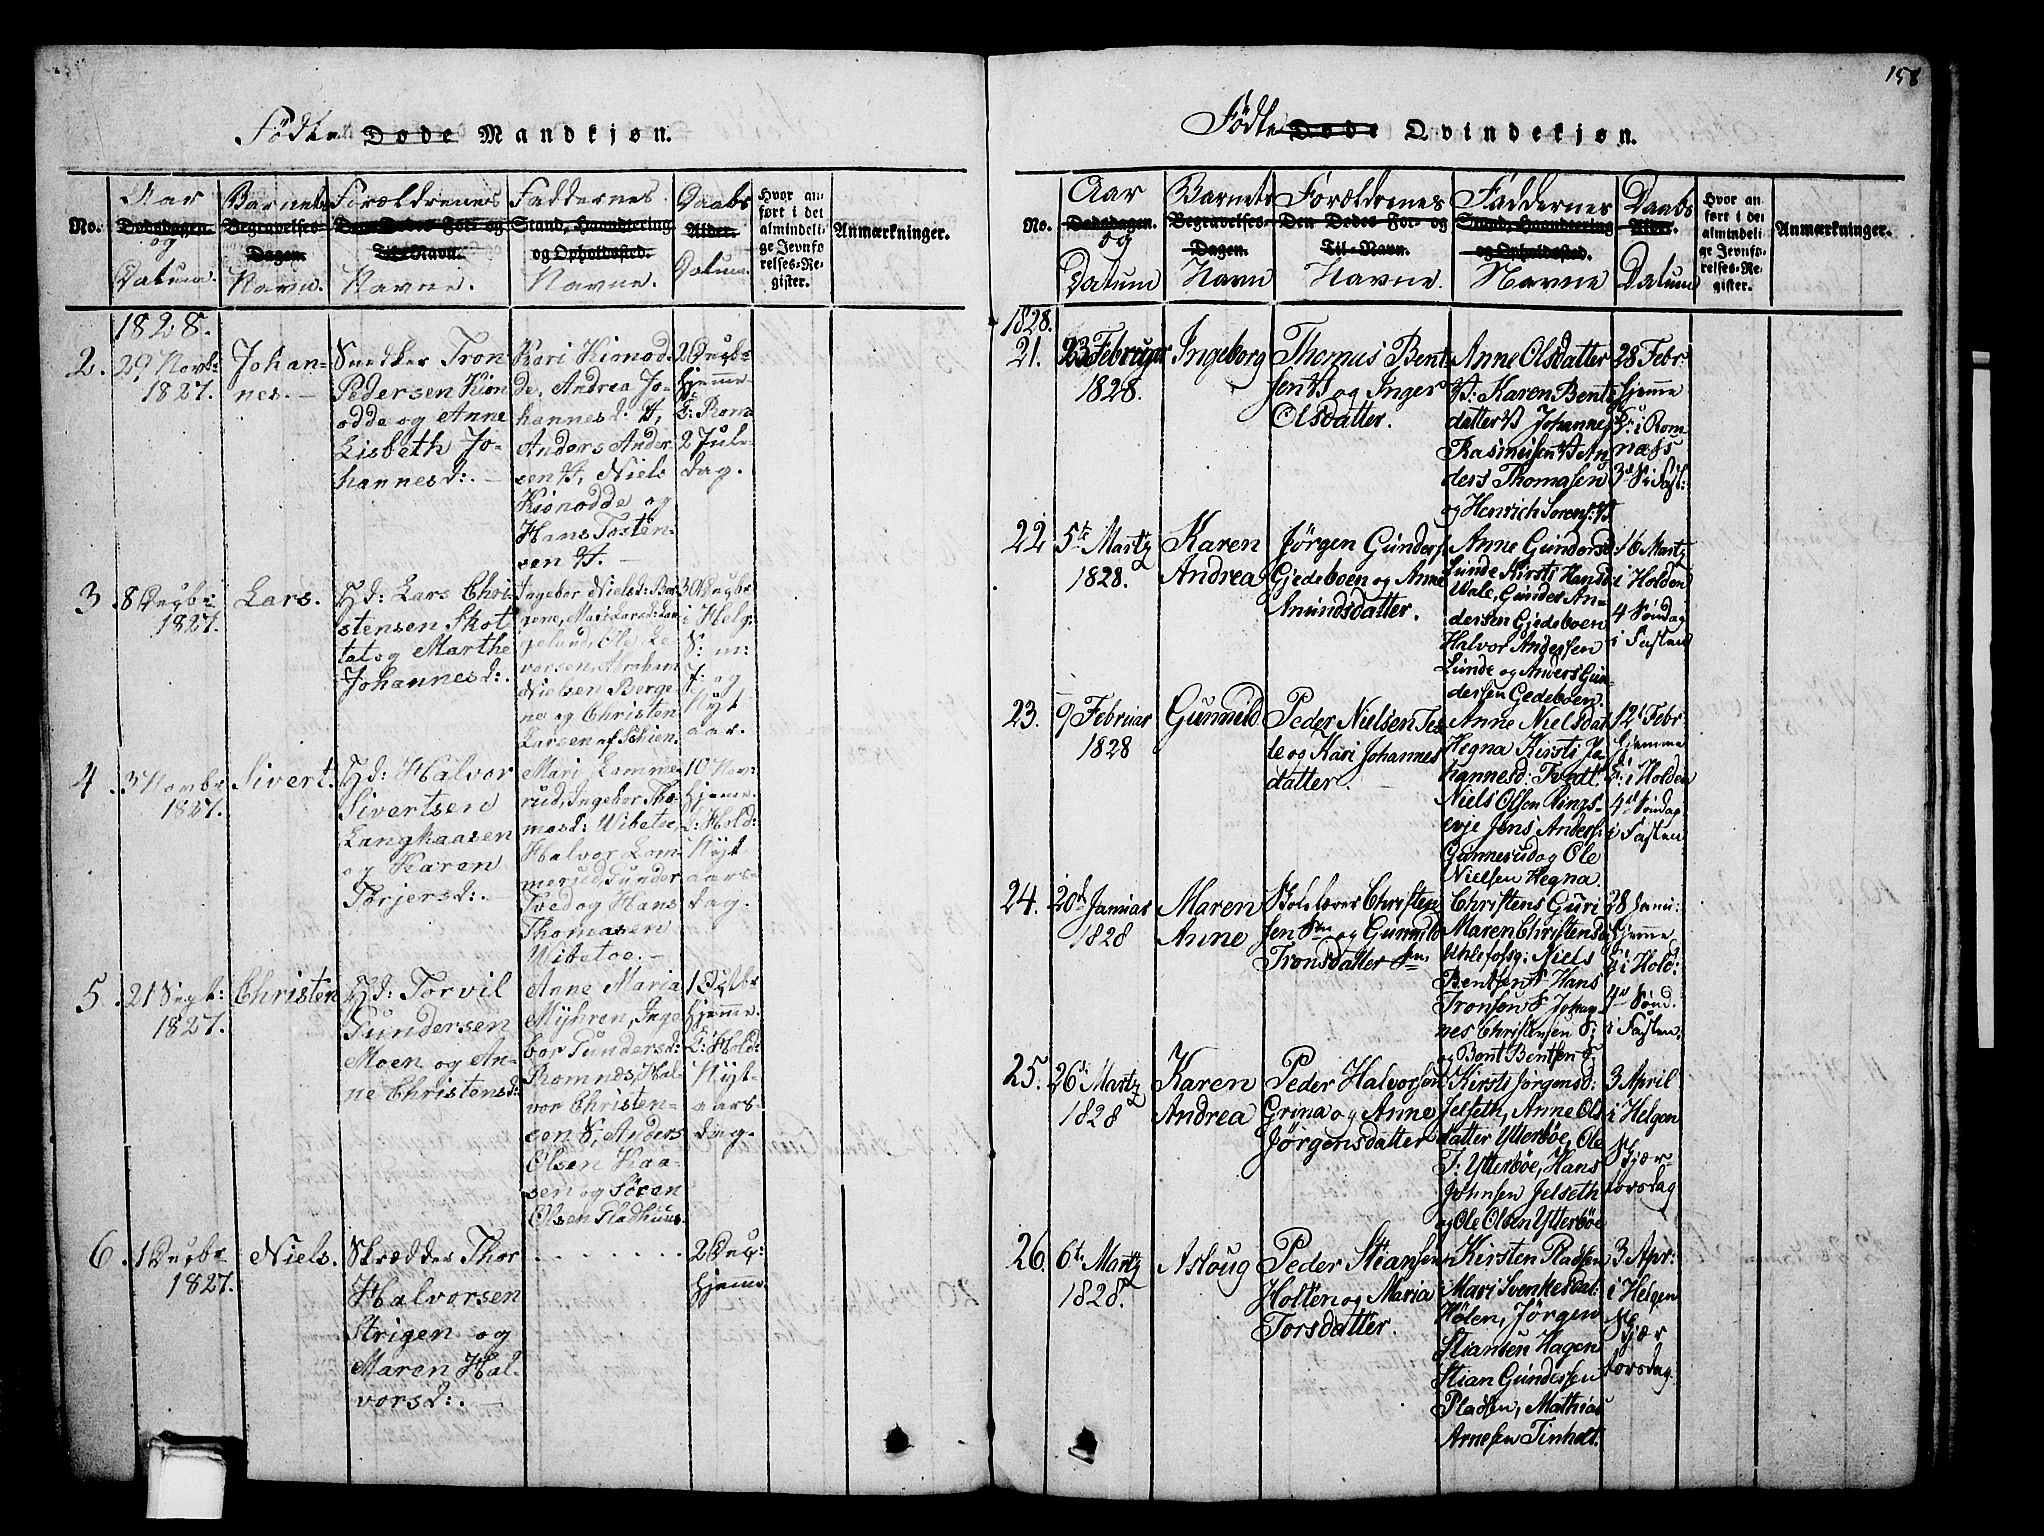 158
Fødte Døde Mandkjøn.
No.
Aar
Dødsdagen.
og
Datum.
Barnets
Begravelses-
Dagen.
Navn.
Forældrenes
Den Dødes For- og
Til-Navn.
Navne.
Faddernes
Stand, Haandtering
og Opholdssted.
Navne.
Daabs
Alder.
Datum.
Hvor an-
ført i det
almindeli-
ge Jevnfø-
relses-Re-
gister.
Anmærkninger.
1828.
2.
29 Novbr
1827.
Johan-
nes. -
Snedker Tron
Pedersen Kion
odde og Anne
Lisbeth Jo-
hannesd:. -
Kari Kionod-
de, Andrea Jo-
hannesd.
Anders Ander
sen, Niels
Kionodde og
Hans Tosten-
sen
2 Decbr
hjemme
Rom
2 Jule-
dag.
3.
8 Decbr
1827.
Lars.
Hd: Lars Chri
stensen Skot
tet og Marthe
Johannesd:.
Ingebor Nielsd: Ber
gene, Mari Larsd: Lan
geland, Ole Le-
vorsen, Abraham
Nielsen Berge-
ne og Christen
Larsen af Schien.
30 Decbr
i Helg:
S: m:
J: og
Nyt
aar.
4.
3 Novbr
1827.
Sivert.
Hd: Halvor
Sivertsen
Langkaasen
og Karen
Torjersd:. -
Mari Lomme
rud, Ingebor Tho
masd: Wibetoe,
Halvor Lom-
merud, Gunder
Tved og Hans
Thomasen
Wibetoe. -
10 Nov:
hjeme.
Hold:
Nyt
aars-
dag.
5.
21 Sept:
1827.
Christen
Hd: Torvil
Gundersen
Moen og An-
ne Christensd:
Anne Maria
Myhren, Inge
bor Gundersd:
Romnes, Hal-
vor Christen-
sen S, Anders
Olsen Kaa-
sen og Søren
Olsen Gladhuus.
hjemme.
Hold:
Nyt-
aars-
dag.
6.
1 Decbr
1827.
Niels.
Skrædder Thor
Halvorsen
Strigen og
Maren Hal-
vorsd:. -
. . . . . . . .
2 Dec:
hjeme
Fødte Døde Qvindekjøn.
No.
Aar
Dødsdagen.
og
Datum
Barnets
Begravelses-
Dagen.
Navn
Forældrenes
Den Dødes For- og
Til-Navn.
Navne.
Faddernes
Stand, Haandtering
og Opholdssted.
Navne
Daabs
Alder.
Datum
Hvor an-
ført i det
almindeli-
ge Jevnfø-
relses-Re-
gister.
Anmærkninger.
1828.
21.
23 Februar
1828.
Ingeborg
Thomas Bent
sen og Inger
Olsdatter.
Anne Olsdatter
Karen Bents
datter Johannes
Rasmusen An
ders Thomasen
og Henrich Sorens:
28 Febr
hjemme
i Rom
næs
3d S: i Fast:
22
5te Martz
1828.
Karen
Andrea
Jørgen Gunders:
Gjedeboen og Anne
Amundsdatter.
Anne Gundersd
Lunde Kirsti Hansd
Wale, Gunder An-
dersen Gjedeboen
Halvor Andersen
Lunde og Anders Gun
dersen Gedeboen.
16 Martz
i Holden
4 Søndag
i Fasten
23.
9 Februar
1828
Gunnild
Peder Nielsen Tes
le og Kari Johannes
datter.
Anne Nielsdat
Hegna Kirsti Jo
hannesd: Tvedt
Niels Olsen Rings-
evje Jens Anders:
Gunnerud og Ole
Nielsen Hegna.
12t Febr
hjemme
i Holden
4de Søndag
i Fasten
24.
20de Januar
1828
Maren
Anne
Christen
sen og Gunnild
Tronsdatter
Christens Guri
Maren Christensd:
Uhlefosg: Niels
Bentsen S Hans
Tronsen S Johan
nes Christensen S:
og Bent Bentsen S
28 Janu:
hjemme
i Hold:
4de Sønd.
i Fasten.
25.
26de Martz
1828
Karen
Andrea
Peder Halvorsen
Grina og Anne
Jørgensdatter
Kirsti Jørgensd:
Jelseth, Anne Ols
datter Ytterbøe, Ole
T: Ytterbøe, Hans
Johnsen Jelseth
og Ole Olsen Ytterbøe
3 April
i Helgen
Skjær-
torsdag
26
6te Martz
1828.
Aslaug
Peder Stiansen
Holten og Maria
Torsdatter.
Kirsten Pladsen
Mari Svenkesdat:
Hølen, Jørgen
Stiansen Hagen
Stian Gundersen
Pladsen, Mathias
Arnesen Tinholt.
3 Apr:
i Helgen
Skjær
torsdag